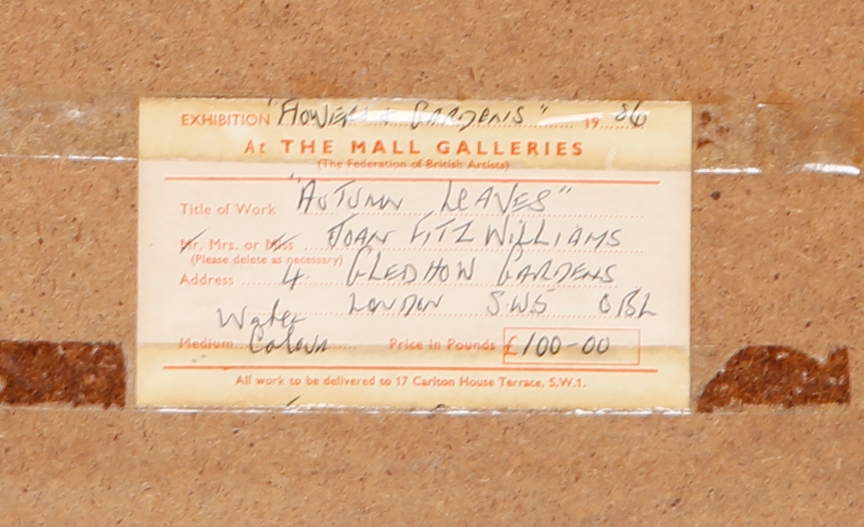 EXHIBITION "FLOWERS & GARDENS" 1986
At THE MALL GALLERIES
(The Federation of British Artists)
Title of Work "AUTUMN LEAVES"
Mr. Mrs. or Miss JOAN FITZWILLIAMS
(Please delete as necessary)
Address 4 GLEDHOW GARDENS
LONDON S.W5 OBL
Water
Medium Colour Price in Pounds £100-00
All work to be delivered to 17 Carlton House Terrace, S.W.1.